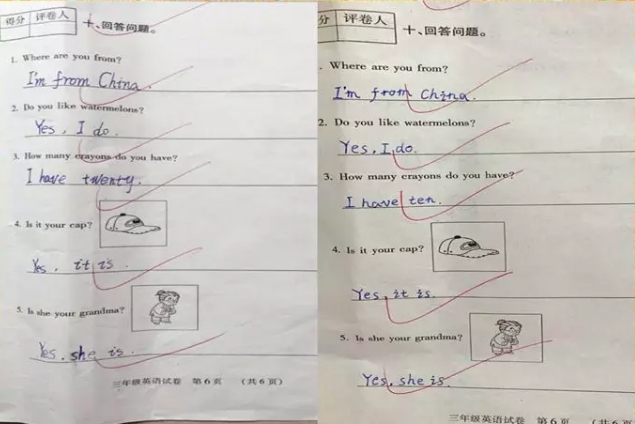 得分 评卷人
十、回答问题。
1. Where are you from?
I'm from China.
2. Do you like watermelons?
Yes, I do.
3. How many crayons do you have?
I have twenty.
4. Is it your cap?
Yes, it is.
5. Is she your grandma?
Yes, she is.
三年级英语试卷 第6页 (共6页)
分 评卷人
十、回答问题。
. Where are you from?
I'm from China.
2. Do you like watermelons?
Yes, I do.
3. How many crayons do you have?
I have ten.
4. Is it your cap?
Yes, it is.
5. Is she your grandma?
Yes, she is.
三年级英语试卷 第6页 (共6页